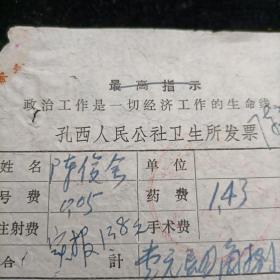 最高指示
政治工作是一切经济工作的生命线
孔西人民公社卫生所发票
姓名 陈俊金 单位
号费 0.05 药费 1.43
注射费 手术费
合計 壹元四角捌